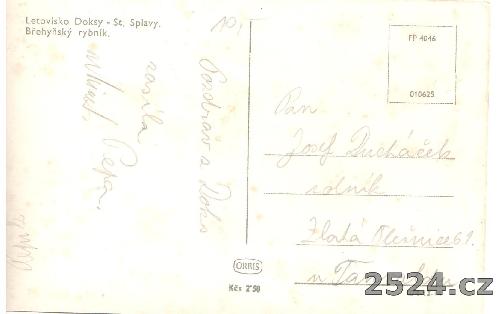 Letovisko Doksy - St. Splavy.
Břehyňský rybník.
10,
Pozdrav z Doks
zasílá
Pepa.
FP 4046
010625
Pan
Josef Ducháček
rolník
Zlatá Olešnice 61.
u Tanvaldu
ORBIS
Kčs 2'50
2524.cz